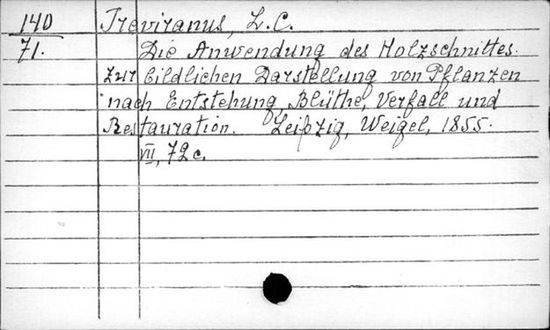 140 Treviranus, L.C.
71. Die Anwendung des Holzschnittes
zur bildlichen Darstellung von Pflanzen
nach Entstehung, Blüthe, Verfall und
Restauration. Leipzig, Weigel, 1855.
VII, 72 c.